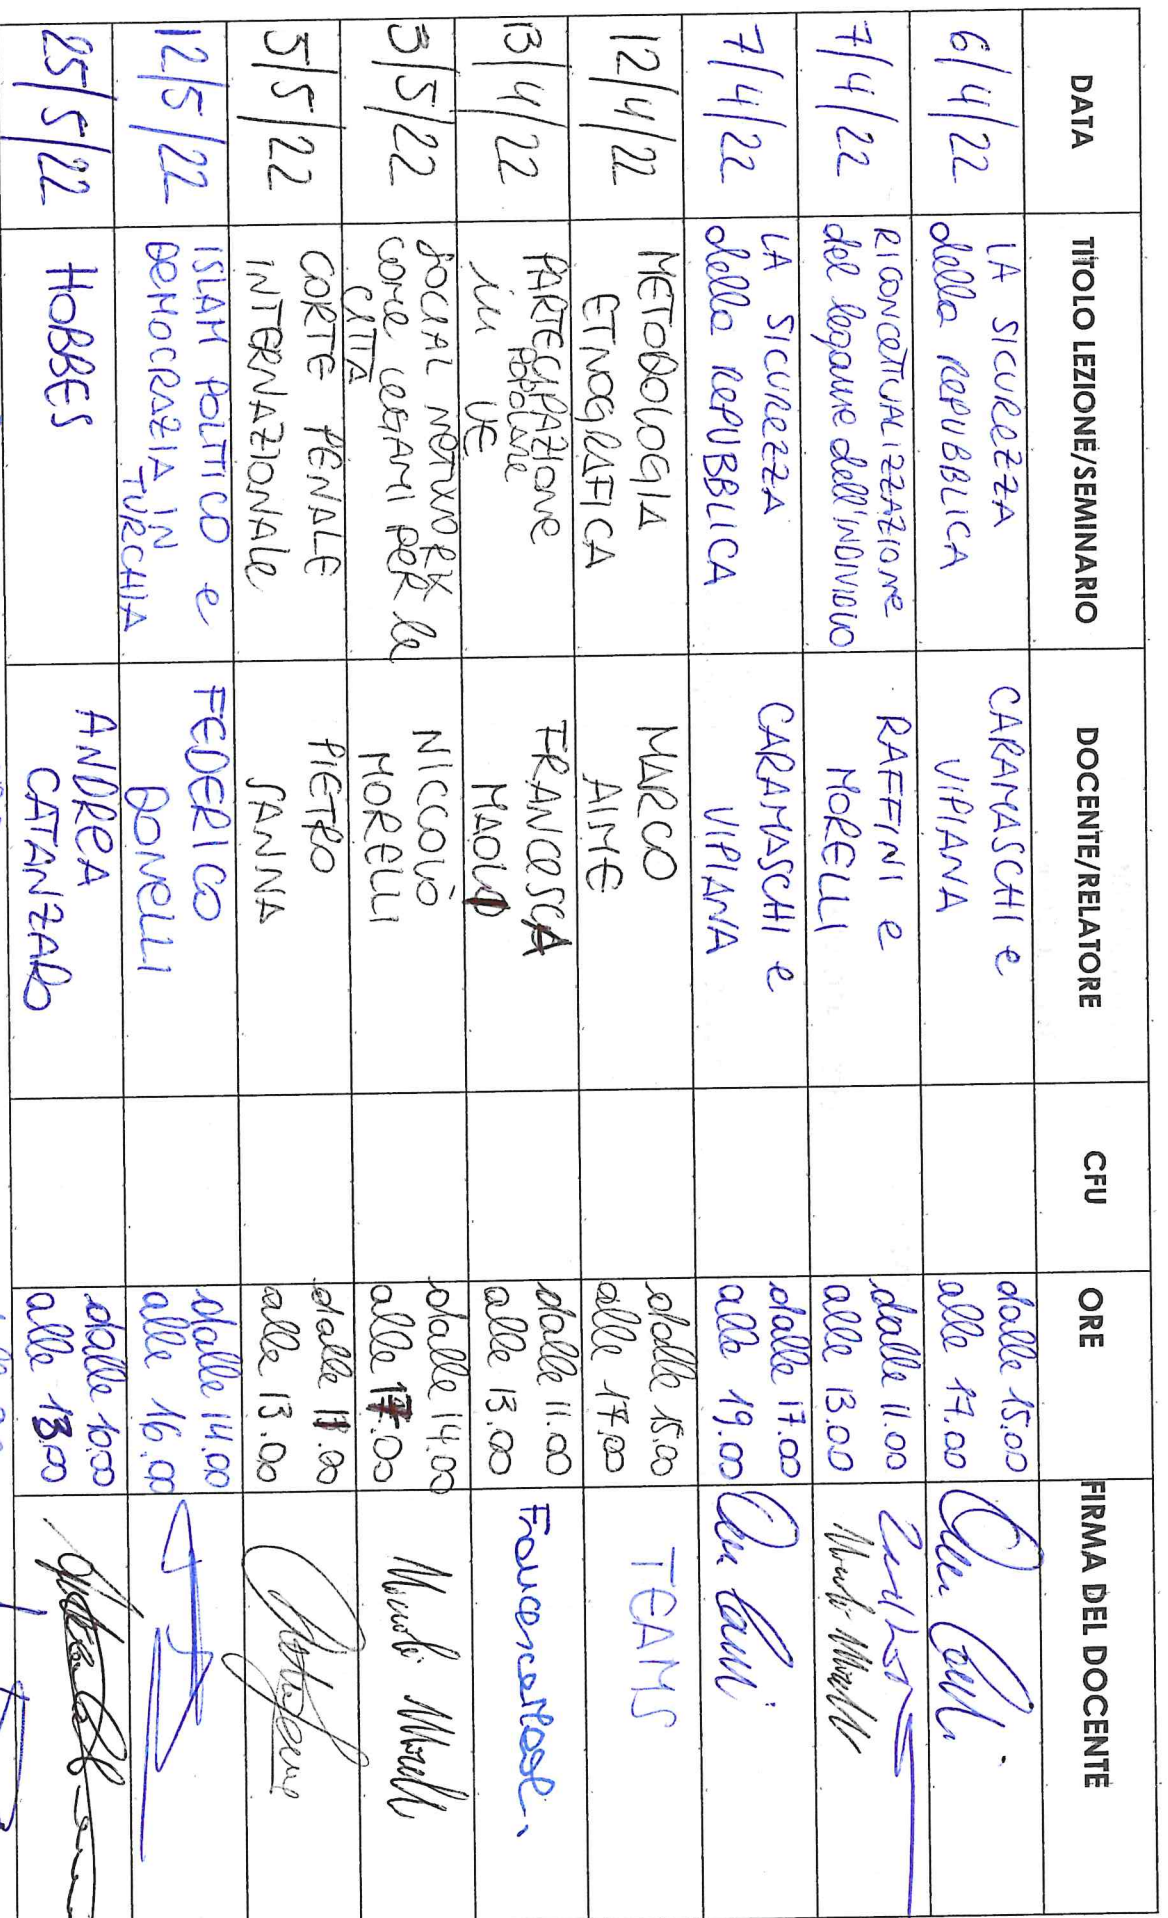 DATA TITOLO LEZIONE/SEMINARIO DOCENTE/RELATORE CFU ORE FIRMA DEL DOCENTE
6/4/22
LA SICUREZZA
della REPUBBLICA
CARAMASCHI e
VIPIANA
dalle 15.00
alle 17.00
7/4/22
RICONCETTUALIZZAZIONE
del legame dell'INDIVIDUO
RAFFINI e
MORELLI
dalle 11.00
alle 13.00
7/4/22
LA SICUREZZA
della REPUBBLICA
CARAMASCHI e
VIPIANA
dalle 17.00
alle 19,00
12/4/22
METODOLOGIA
ETNOGRAFICA
MARCO
AIME
dalle 15.00
alle 17.00
TEAMS
13/4/22
PARTECIPAZIONE
POPOLARE
in UE
FRANCESCA
MAOLI
dalle 11.00
alle 13.00
Francesca Maoli
3/5/22
SOCIAL NETWORK
come LEGAMI PER la
CITTA
NICCOLÒ
MORELLI
dalle 14.00
alle 17.00
5/5/22
CORTE PENALE
INTERNAZIONALE
PIETRO
SANNA
dalle 11.00
alle 13.00
12/5/22
ISLAM POLITICO e
DEMOCRAZIA IN
TURCHIA
FEDERICO
DONELLI
dalle 14.00
alle 16.00
25/5/22
HOBBES
ANDREA
CATANZARO
dalle 10.00
alle 13.00